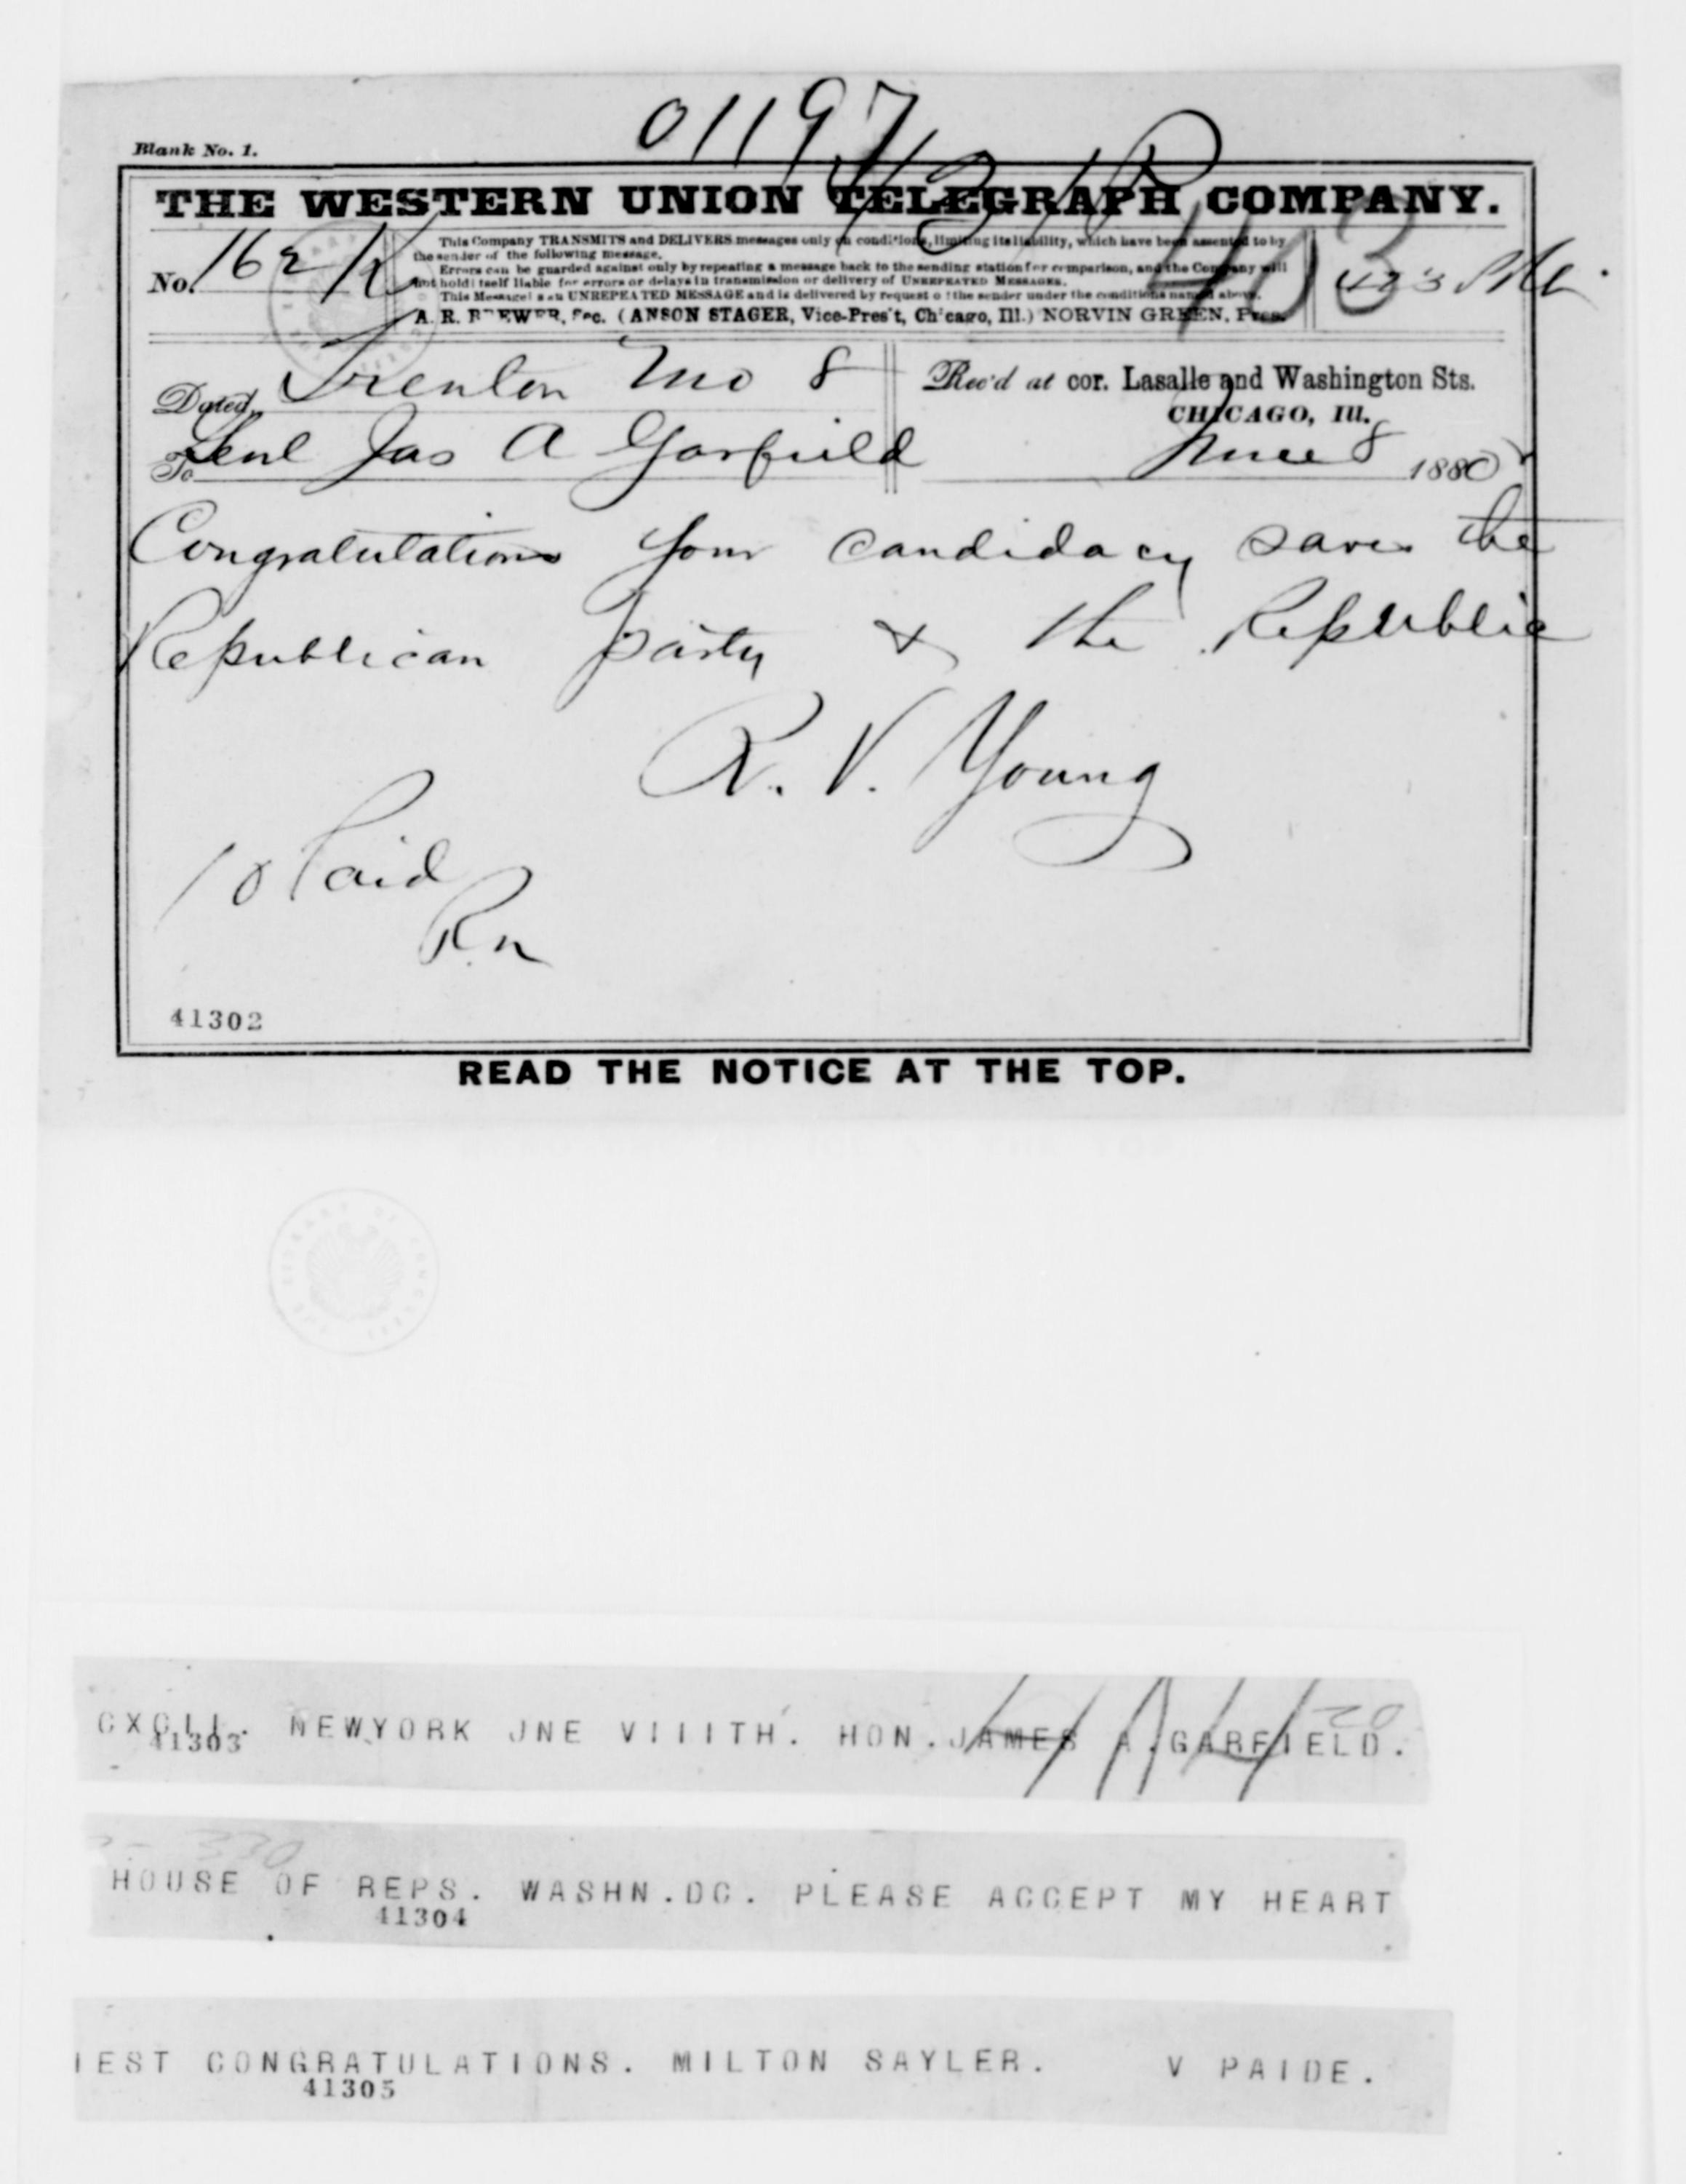 01197
Blank No. 1.
THE WESTERN UNION TELEGRAPH COMPANY.
No. 162 K
This Company TRANSMITS and DELIVERS messages only on conditions, limiting its liability, which have been assented to by
the sender of the following message.
Errors can be guarded against only by repeating a message back to the sending station for comparison, and the Company will
not hold itself liable for errors or delays in transmission or delivery of UNREPEATED MESSAGES.
This Message is an UNREPEATED MESSAGE and is delivered by request of the sender under the conditions named above.
A. R. BREWER, Sec. (ANSON STAGER, Vice-Pres't, Chicago, Ill.) NORVIN GREEN, Pres.
403
423 PM
Dated, Trenton Mo 8
Rec'd at cor. Lasalle and Washington Sts.
CHICAGO, Ill.
To Genl Jas A Garfield
June 8 1880
Congratulations Your candidacy saves the
Republican party & the Republic
R. V. Young
10 Paid
Rn
41302
READ THE NOTICE AT THE TOP.
CXCII. NEWYORK JNE VIIITH. HON.JAMES A.GARFIELD.
41303
HOUSE OF REPS. WASHN.DC. PLEASE ACCEPT MY HEART
41304
IEST CONGRATULATIONS. MILTON SAYLER. V PAIDE.
41305